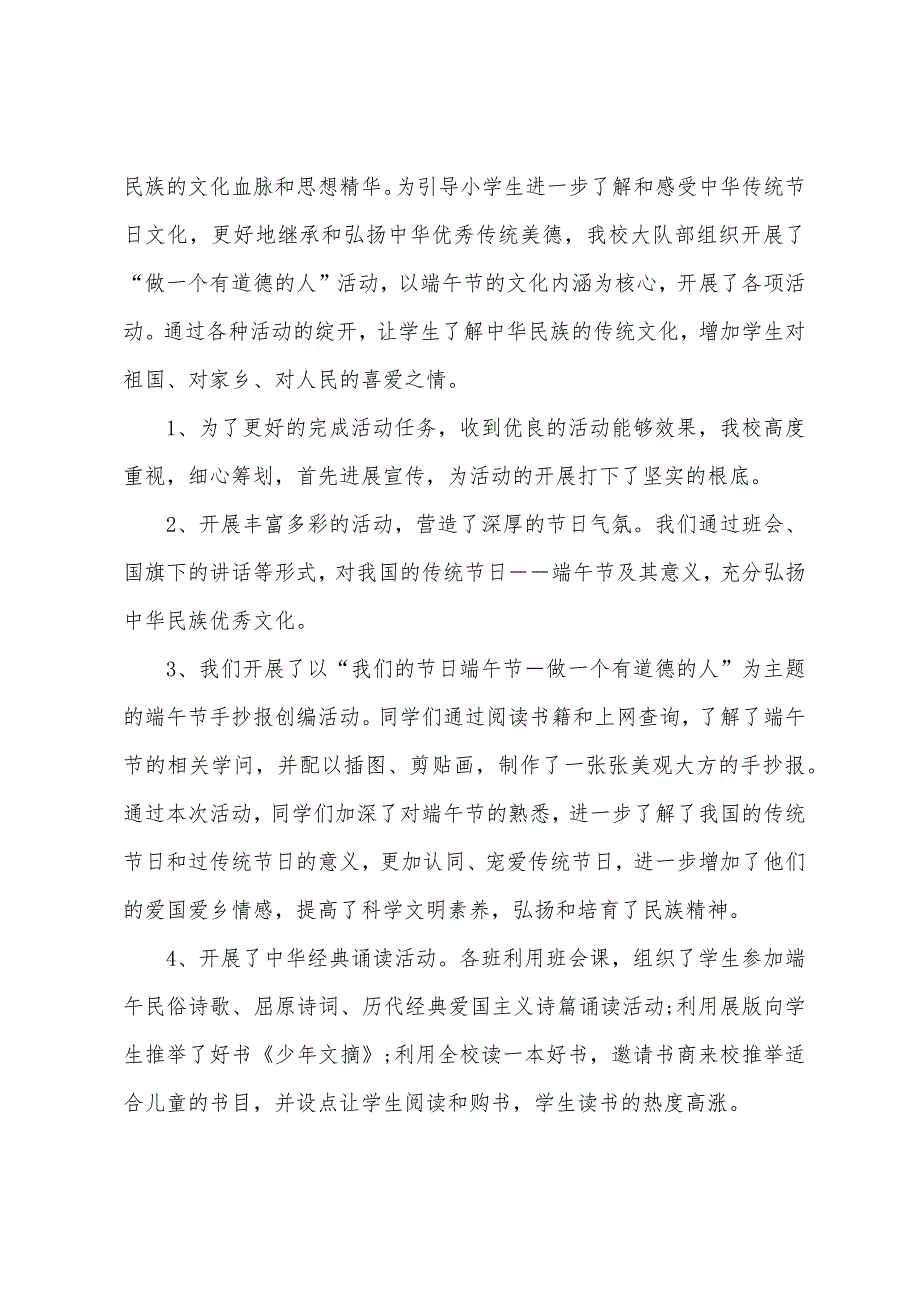 民族的文化血脉和思想精华。为引导小学生进一步了解和感受中华传统节
日文化，更好地继承和弘扬中华优秀传统美德，我校大队部组织开展了
“做一个有道德的人”活动，以端午节的文化内涵为核心，开展了各项活
动。通过各种活动的绽开，让学生了解中华民族的传统文化，增加学生对
祖国、对家乡、对人民的喜爱之情。
1、为了更好的完成活动任务，收到优良的活动能够效果，我校高度
重视，细心筹划，首先进展宣传，为活动的开展打下了坚实的根底。
2、开展丰富多彩的活动，营造了深厚的节日气氛。我们通过班会、
国旗下的讲话等形式，对我国的传统节日——端午节及其意义，充分弘扬
中华民族优秀文化。
3、我们开展了以“我们的节日端午节—做一个有道德的人”为主题
的端午节手抄报创编活动。同学们通过阅读书籍和上网查询，了解了端午
节的相关学问，并配以插图、剪贴画，制作了一张张美观大方的手抄报。
通过本次活动，同学们加深了对端午节的熟悉，进一步了解了我国的传统
节日和过传统节日的意义，更加认同、宠爱传统节日，进一步增加了他们
的爱国爱乡情感，提高了科学文明素养，弘扬和培育了民族精神。
4、开展了中华经典诵读活动。各班利用班会课，组织了学生参加端
午民俗诗歌、屈原诗词、历代经典爱国主义诗篇诵读活动;利用展版向学
生推举了好书《少年文摘》;利用全校读一本好书，邀请书商来校推举适
合儿童的书目，并设点让学生阅读和购书，学生读书的热度高涨。